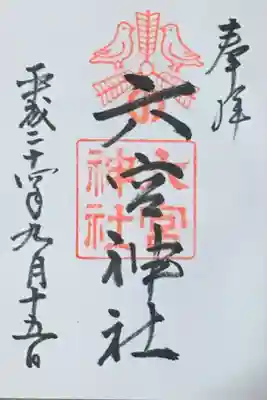 奉拝
六宮神社
六宮
神社
平成二十四年九月十五日